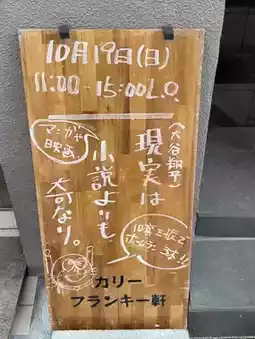 10月19日(日)
11:00-15:00L.O.
(大谷翔平)
現実は
小説よりも
奇なり。
マンガや
映画
10奪三振で
ホームラン3本!!
カリー
フランキー軒